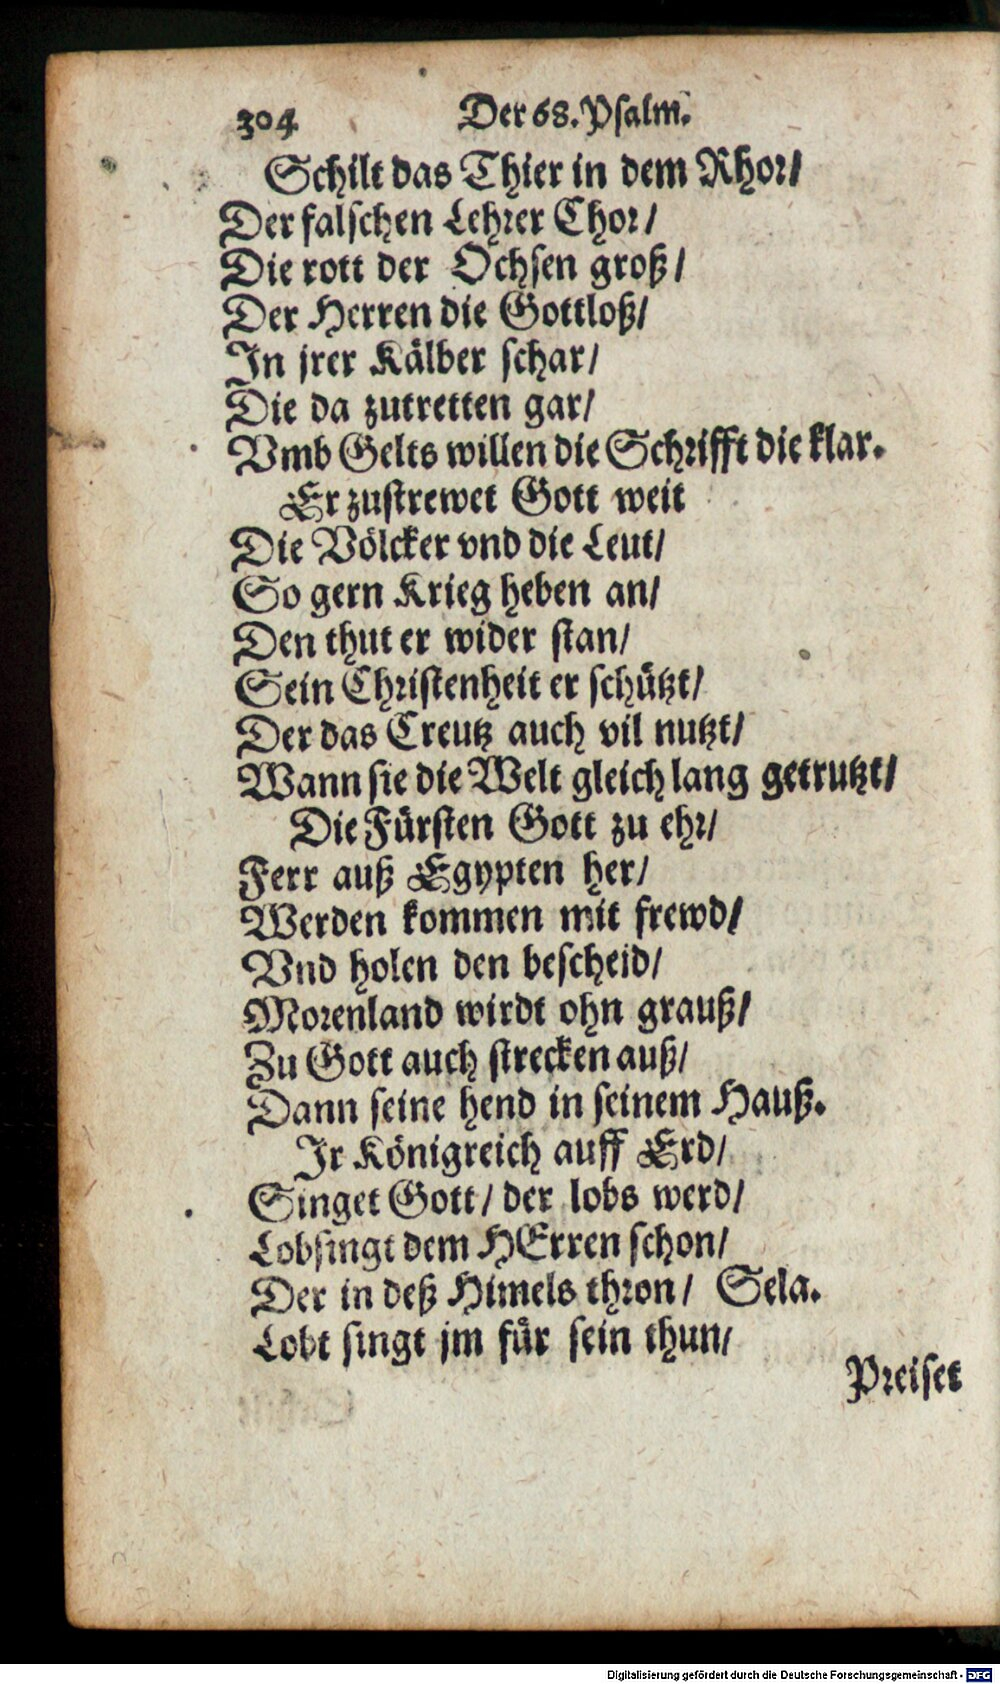 304 Der 68. Psalm.
Schilt das Thier in dem Rhor/
Der falschen Lehrer Chor/
Die rott der Ochsen groß/
Der Herren die Gottloß/
In jrer Kälber schar/
Die da zutretten gar/
Vmb Gelts willen die Schrifft die klar.
Er zustrewet Gott weit
Die Völcker vnd die Leut/
So gern Krieg heben an/
Den thut er wider stan/
Sein Christenheit er schützt/
Der das Creutz auch vil nutzt/
Wann sie die Welt gleich lang getrutzt/
Die Fürsten Gott zu ehr/
Ferr auß Egypten her/
Werden kommen mit frewd/
Vnd holen den bescheid/
Morenland wirdt ohn grauß/
Zu Gott auch strecken auß/
Dann seine hend in seinem Hauß.
Ir Königreich auff Erd/
Singet Gott/ der lobs werd/
Lobsingt dem HErren schon/
Der in deß Himels thron/ Sela.
Lobt singt jm für sein thun/
Preiset
Digitalisierung gefördert durch die Deutsche Forschungsgemeinschaft - DFG